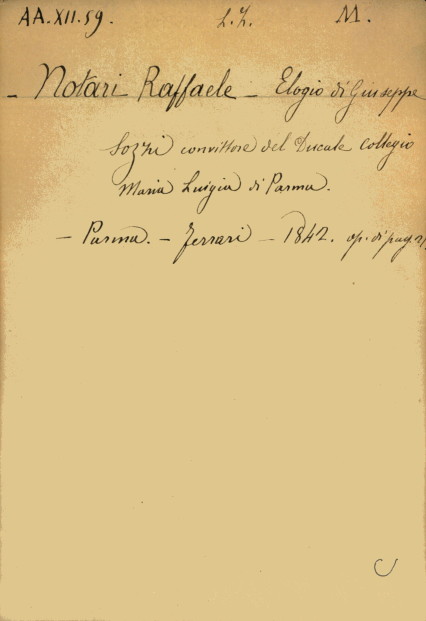 AA.XII.59. L.Z. M.
- Notari Raffaele - Elogio di Giuseppe
Sozzi convittore del Ducale Collegio
Maria Luigia di Parma.
- Parma. - Ferrari - 1842. op. di pag.